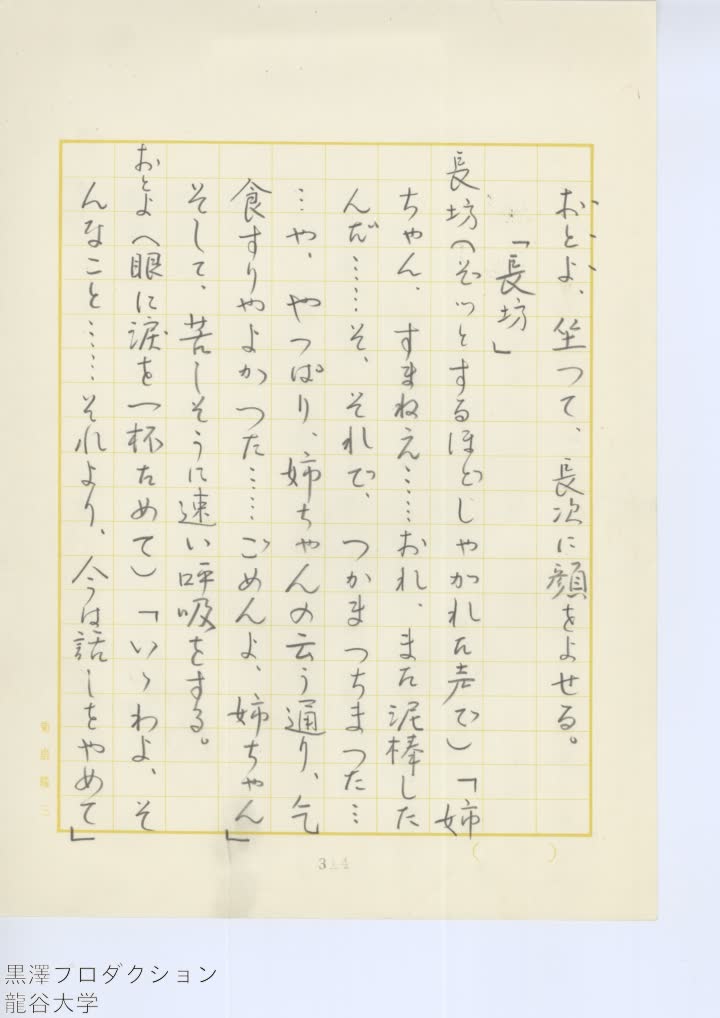 おとよ、坐つて、長次に顔をよせる。
「長坊」
長坊(ぞッとするほどしやがれた声で)「姉
ちやん、すまねえ……おれ、また泥棒した
んだ……そ、それで、つかまつちまつた…
…や、やつぱり、姉ちやんの云う通り、乞
食すりやよかつた……ごめんよ、姉ちやん」
そして、苦しそうに速い呼吸をする。
おとよ(眼に涙を一杯ためて)「いゝわよ、そ
んなこと……それより、今は話しをやめて」
314
黒澤プロダクション
龍谷大学